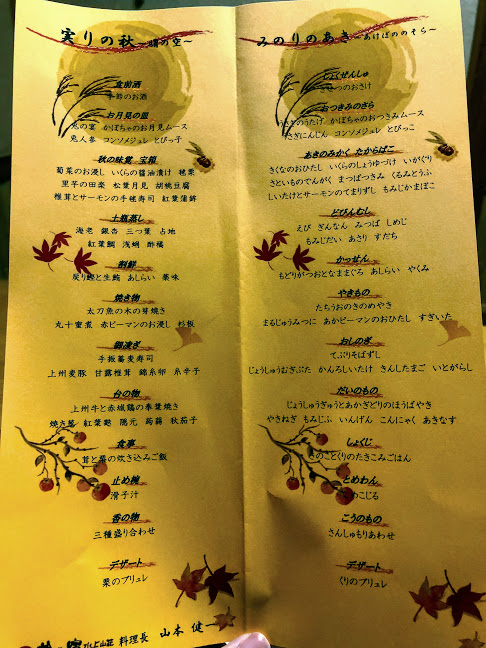 実りの秋～曙の空～
食前酒
季節のお酒
お月見の皿
兎の宴 かぼちゃのお月見ムース
兎人参 コンソメジュレ とびっ子
秋の味覚 宝箱
菊菜のお浸し いくらの醤油漬け 毬栗
里芋の田楽 松葉月見 胡桃豆腐
椎茸とサーモンの手毬寿司 紅葉蒲鉾
土瓶蒸し
海老 銀杏 三つ葉 占地
紅葉鯛 浅蜊 酢橘
割鮮
戻り鰹と生鮪 あしらい 薬味
焼き物
太刀魚の木の芽焼き
丸十蜜煮 赤ピーマンのお浸し 杉板
御凌ぎ
手振蕎麦寿司
上州麦豚 甘露椎茸 錦糸卵 糸辛子
台の物
上州牛と赤城鶏の朴葉焼き
焼き葱 紅葉麩 隠元 蒟蒻 秋茄子
食事
茸と栗の炊き込みご飯
止め椀
滑子汁
香の物
三種盛り合わせ
デザート
栗のブリュレ
料理長 山本 健一
みのりのあき～あけぼののそら～
しょくぜんしゅ
きせつのおさけ
おつきみのさら
うさぎのうたげ かぼちゃのおつきみムース
うさぎにんじん コンソメジュレ とびっこ
あきのみかく たからばこ
きくなのおひたし いくらのしょうゆつけ いがぐり
さといものでんがく まつばつきみ くるみとうふ
しいたけとサーモンのてまりずし もみじかまぼこ
どびんむし
えび ぎんなん みつば しめじ
もみじだい あさり すだち
かっせん
もどりがつおとなままぐろ あしらい やくみ
やきもの
たちうおのきのめやき
まるじゅうみつに あかピーマンのおひたし すぎいた
おしのぎ
てぶりそばずし
じょうしゅうむぎぶた かんろしいたけ きんしたまご いとがらし
だいのもの
じょうしゅうぎゅうとあかぎどりのほうばやき
やきねぎ もみじふ いんげん こんにゃく あきなす
しょくじ
きのことくりのたきこみごはん
とめわん
なめこじる
こうのもの
さんしゅもりあわせ
デザート
くりのブリュレ